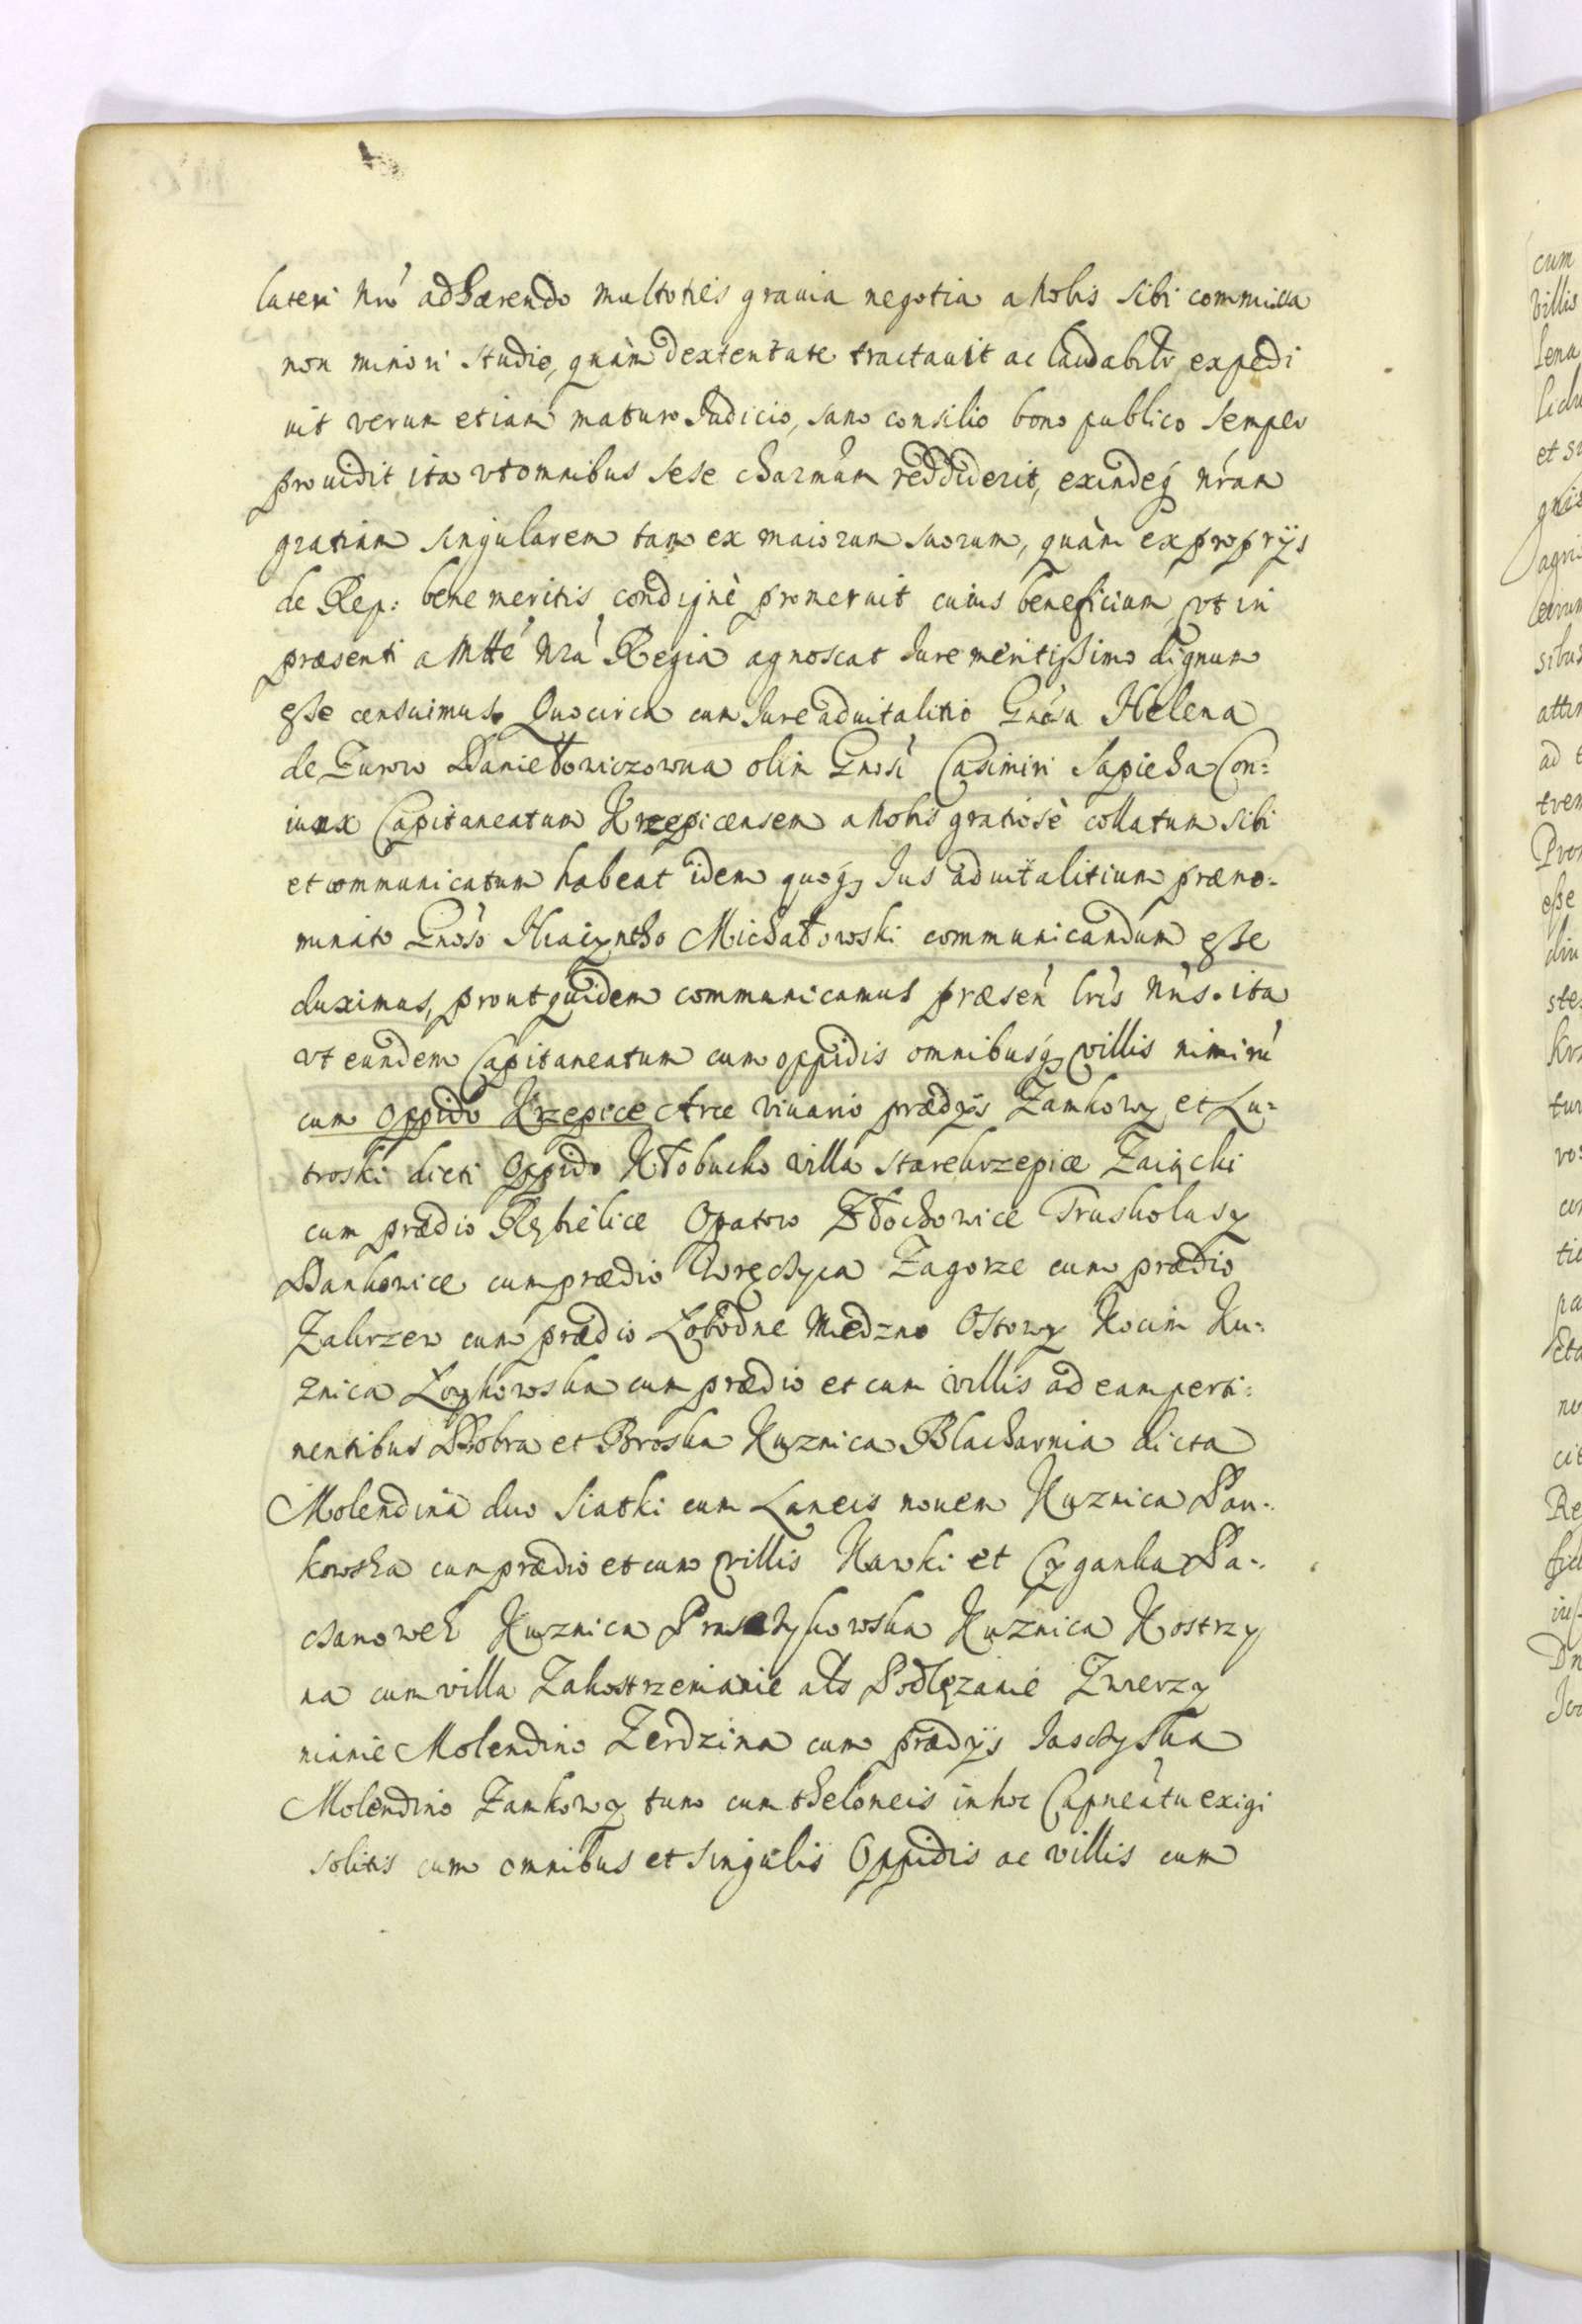 lateri nrõ adhærendo multoties grauia negotia a nobis sibi commissa
non minori studio, quàm dexteritate tractauit ac laudabilr expedi
uit verum etiam maturo Iudicio, sano consilio bono publico semper
prouidit ita vt omnibus sese charmam reddiderit, exindeq nram
gratiam singularem tam ex maiorum suorum, quàm ex proprijs
de Rep: bene meritis condignè promeruit cuius beneficium vt in
præsenti a Mtte Nra Regia agnoscat Iure meritißimo dignum
eße censuimus. Quocirca cum Iure aduitalitio Gnosa Helena
de Zurow Daniełowiczowna olim Gnosi Casimiri Sapieha Con=
iunx Capitaneatum Krzepicensem a nobis gratiosè collatum sibi
et communicatum habeat idem quoq Ius aduitalitium præno=
minato Gnoso Hiacyntho Michałowski communicandum eße
duximus, prout quidem communicamus præsen lris nris. ita
vt eundem Capitaneatum cum oppidis omnibusq villis nimirũ
cum Oppido Krzepice Arce viuario prædijs Zamkowy et Lu=
troski dicti Oppido Kłobucko villa starekrzepice Zaiączki
cum prædio Rębielice Opatow Złochowice Truskolasy
Dankowice cum prædio Wręczyca Zagorze cum prædio
Zakrzew cum prædio Łobodne Miedzno Ostowy Kocin Ku=
znica Łoykowska cum prædio et cum villis ad eam perti=
nentibus Bobra et Broska Kuznica Blacharnia dicta
Molendina duo Siatki cum Laneis nouem Kuznica Pan=
kowska cum prædio et cum villis Kawki et Cyganka Pa=
chanowek Kuznica Kuznica Kostrzy
na cum villa Zakostrzenianie als Podłęzanie Zwierzy
nianie Molendino Zerdzina cum prædijs Iaschyska
Molendino Zamkowy tum cum theloneis in hoc Capneatu exigi
solitis cum omnibus et singulis Oppidis ac villis cum